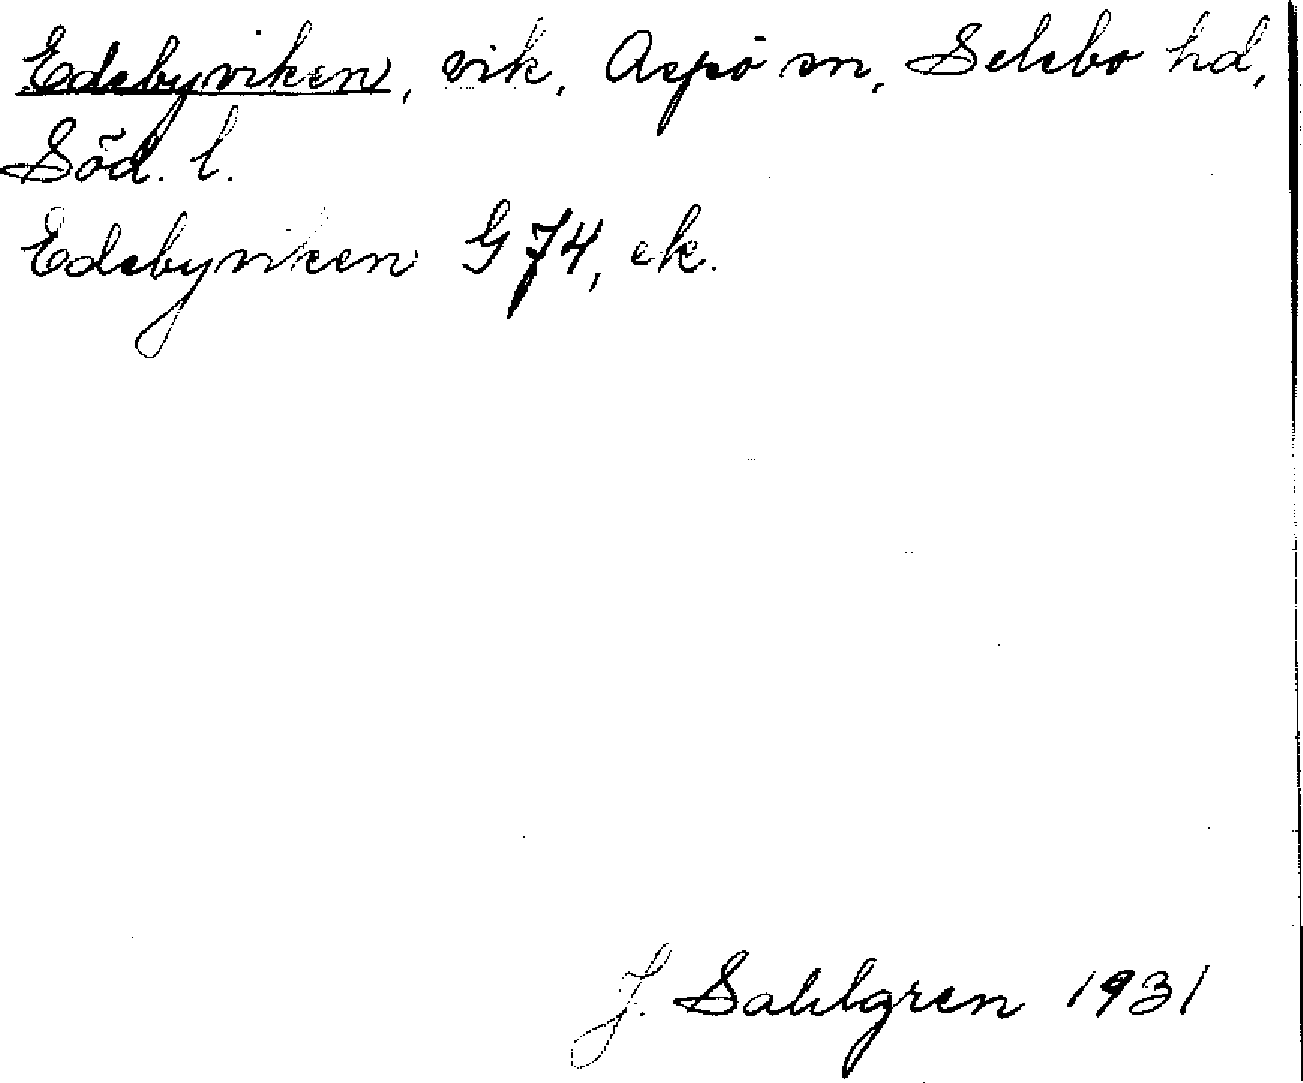 Edsbyviken, vik, Aspö sn, Selebo hd,
Söd. l.
Edsbyviken G 74, ek.
J. Sahlgren 1931